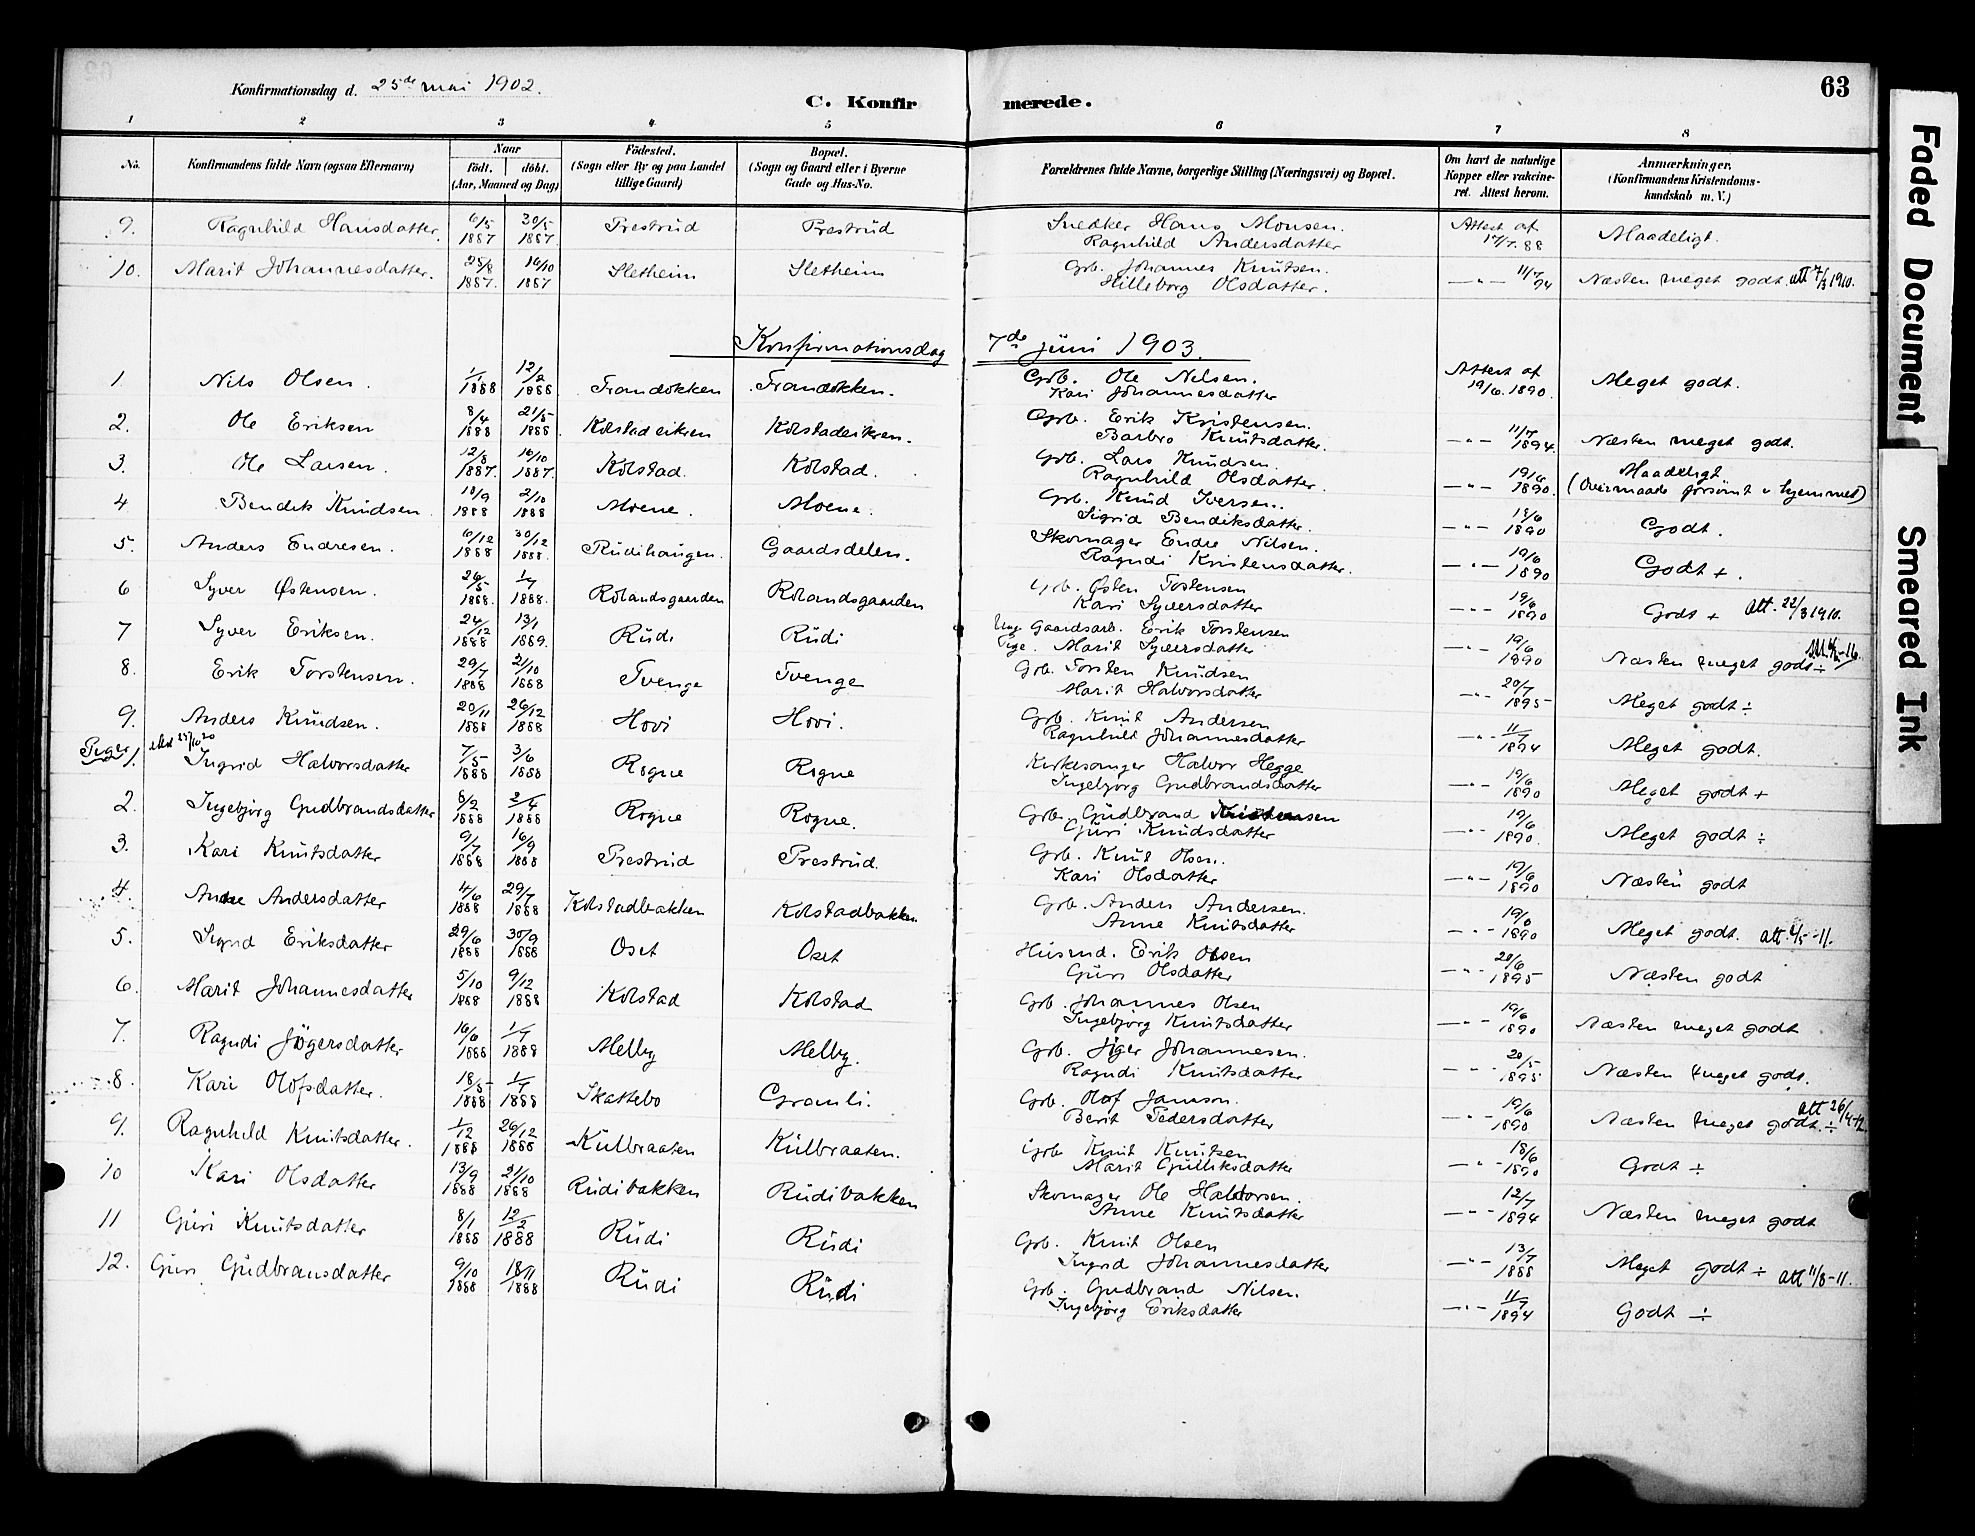 63
Konfirmationsdag d. 25de mai 1902.
C. Konfirmerede.
1 2 3 4 5 6 7 8
No. Konfirmandens fulde Navn (ogsaa Efternavn) Naar født. døbt. (Aar, Maaned og Dag) Fødested. (Sogn eller By og paa Landet tillige Gaard) Bopæl. (Sogn og Gaard eller i Byerne Gade og Hus-No. Forældrenes fulde Navne, borgerlige Stilling (Næringsvei) og Bopæl. Om havt de naturlige Kopper eller vakcineret. Attest herom. Anmærkninger. (Konfirmandens Kristendomskundskab m. V.)
9. Ragnhild Hansdatter. 6/5 1887 30/5 1887. Prestrud Prestrud Snedker Hans Monsen. Ragnhild Andersdatter Attest af 17/7.88 Maadeligt.
10. Marit Johannesdatter. 25/8 1887. 16/10 1887 Sletheim Sletheim Grb. Johannes Knutsen. Hilleborg Olsdatter. —"— 11/7 94 Næsten meget godt. att 7/3 1910.
Konfirmationsdag 7de juni 1903.
1 Nils Olsen. 1/1 1888 12/2 1888 Frandokken Frandokken. Grb. Ole Nilsen. Kari Johannesdatter Attest af 19/6.1890. Meget godt.
2. Ole Eriksen 8/4 1888 21/5 1888. Kolstadeikren Kolstadeikren. Grb. Erik Kristensen. Barbro Knutsdatter. —"— 11/7 1894. Næsten meget godt.
3. Ole Larsen. 12/8 1887. 16/10 1887. Kolstad. Kolstad. Grb. Lars Knudsen. Ragnhild Olsdatter. —"— 19/6 1890. Maadeligt (Overmaade forsømt i hjemmet)
4 Bendik Knudsen. 10/9 1888 2/10 1888 Moene. Moene. Grb. Knud Iversen. Sigrid Bendiksdatter. —"— 18/6 1890 Godt.
5. Anders Endresen. 6/12 1888 30/12 1888. Rudihaugen. Gaardsdelen. Skomager Endre Nilsen. Ragndi Kristensdatter. —"— 19/6 1890 Godt +.
6 Syver Østensen. 26/5 1888. 1/7 1888. Rolandsgaarden Rolandsgaarden Grb. Østen Torstensen Kari Syversdatter —"— 19/6 1890 Godt + att. 22/3 1910.
7 Syver Eriksen. 24/12 1888 13/1 1889. Rudi Rudi Unge Gaardsarb. Erik Torstensen Pige. Marit Syversdatter —"— 19/6 1890 Næsten meget godt ÷
8. Erik Torstensen. 29/7 1888 21/10 1888 Tvenge Tvenge Grb. Torsten Knudsen Marit Halvorsdatter —"— 20/7 1895 Meget godt ÷
9. Anders Knudsen. 20/11 1888 26/12 1888 Hovi Hovi. Grb. Knut Andersen Ragnhild Johannesdatter —"— 11/7 1894 Meget godt.
Piger 1. Ingrid Halvorsdatter 7/5 1888 3/6 1888 Rogne Rogne Kirkesanger Halvor Hegge Ingebjørg Gudbrandsdatter —"— 19/6 1890 Meget godt +
2. Ingebjørg Gudbrandsdatter 8/2 1888 2/4 1888 Rogne Rogne. Grb. Gudbrand Kristensen Guri Knudsdatter —"— 19/6 1890. Meget godt ÷
3. Kari Knutsdatter 9/7 1888 16/9 1888 Prestrud Prestrud. Grb. Knut Olsen. Kari Olsdatter —"— 19/6 1890 Næsten godt
4. Anne Andersdatter 4/6 1888 29/7 1888 Kolstadbakken Kolstadbakken Grb. Anders Andersen. Anne Knutsdatter —"— 19/6 1890 Meget godt. att. 6/5-11.
5. Sigrid Eriksdatter 29/6 1888 30/9 1888 Oset Oset Husmd. Erik Olsen Guri Olsdatter —"— 20/6 1895 Næsten godt
6. Marit Johannesdatter 5/10 1888 9/12 1888 Kolstad Kolstad Grb. Johannes Olsen Ingebjørg Knutsdatter —"— 19/6 1890 Næsten meget godt
7. Ragndi Jøgersdatter 16/6 1888 1/7 1888 Melby Melby. Grb. Jøger Johannesen. Ragndi Knutsdatter —"— 20/5 1895 Næsten meget godt.
8 Kari Olofsdatter. 18/5 1888 1/7 1888 Skattebo Granli. Grb. Olof Janson. Berit Pedersdatter —"— 19/6 1890 Næsten meget godt. ÷ att 26/4-12
9. Ragnhild Knutsdatter. 1/12 1888 26/12 1888 Kulbraaten Kulbraaten. Grb Knut Knutsen Marit Gulliksdatter —"— 18/6 1890 Godt ÷
10 Kari Olsdatter 13/9 1888 21/10 1888 Rudibakken Rudibakken Skomager Ole Halvorsen. Anne Knutsdatter —"— 12/7 1894 Næsten meget godt
11 Guri Knutsdatter 8/1 1888 12/2 1888 Rudi Rudi Grb. Knut Olsen Ingrid Johannesdatter —"— 13/7 1888 Meget godt ÷ att 11/8-11.
12. Guri Gudbransdatter 9/10 1888 18/11 1888 Rudi Rudi Grb. Gudbrand Nilsen. Ingebjørg Eriksdatter —"— 11/7 1894 Godt ÷
Faded Document
Smeared Ink